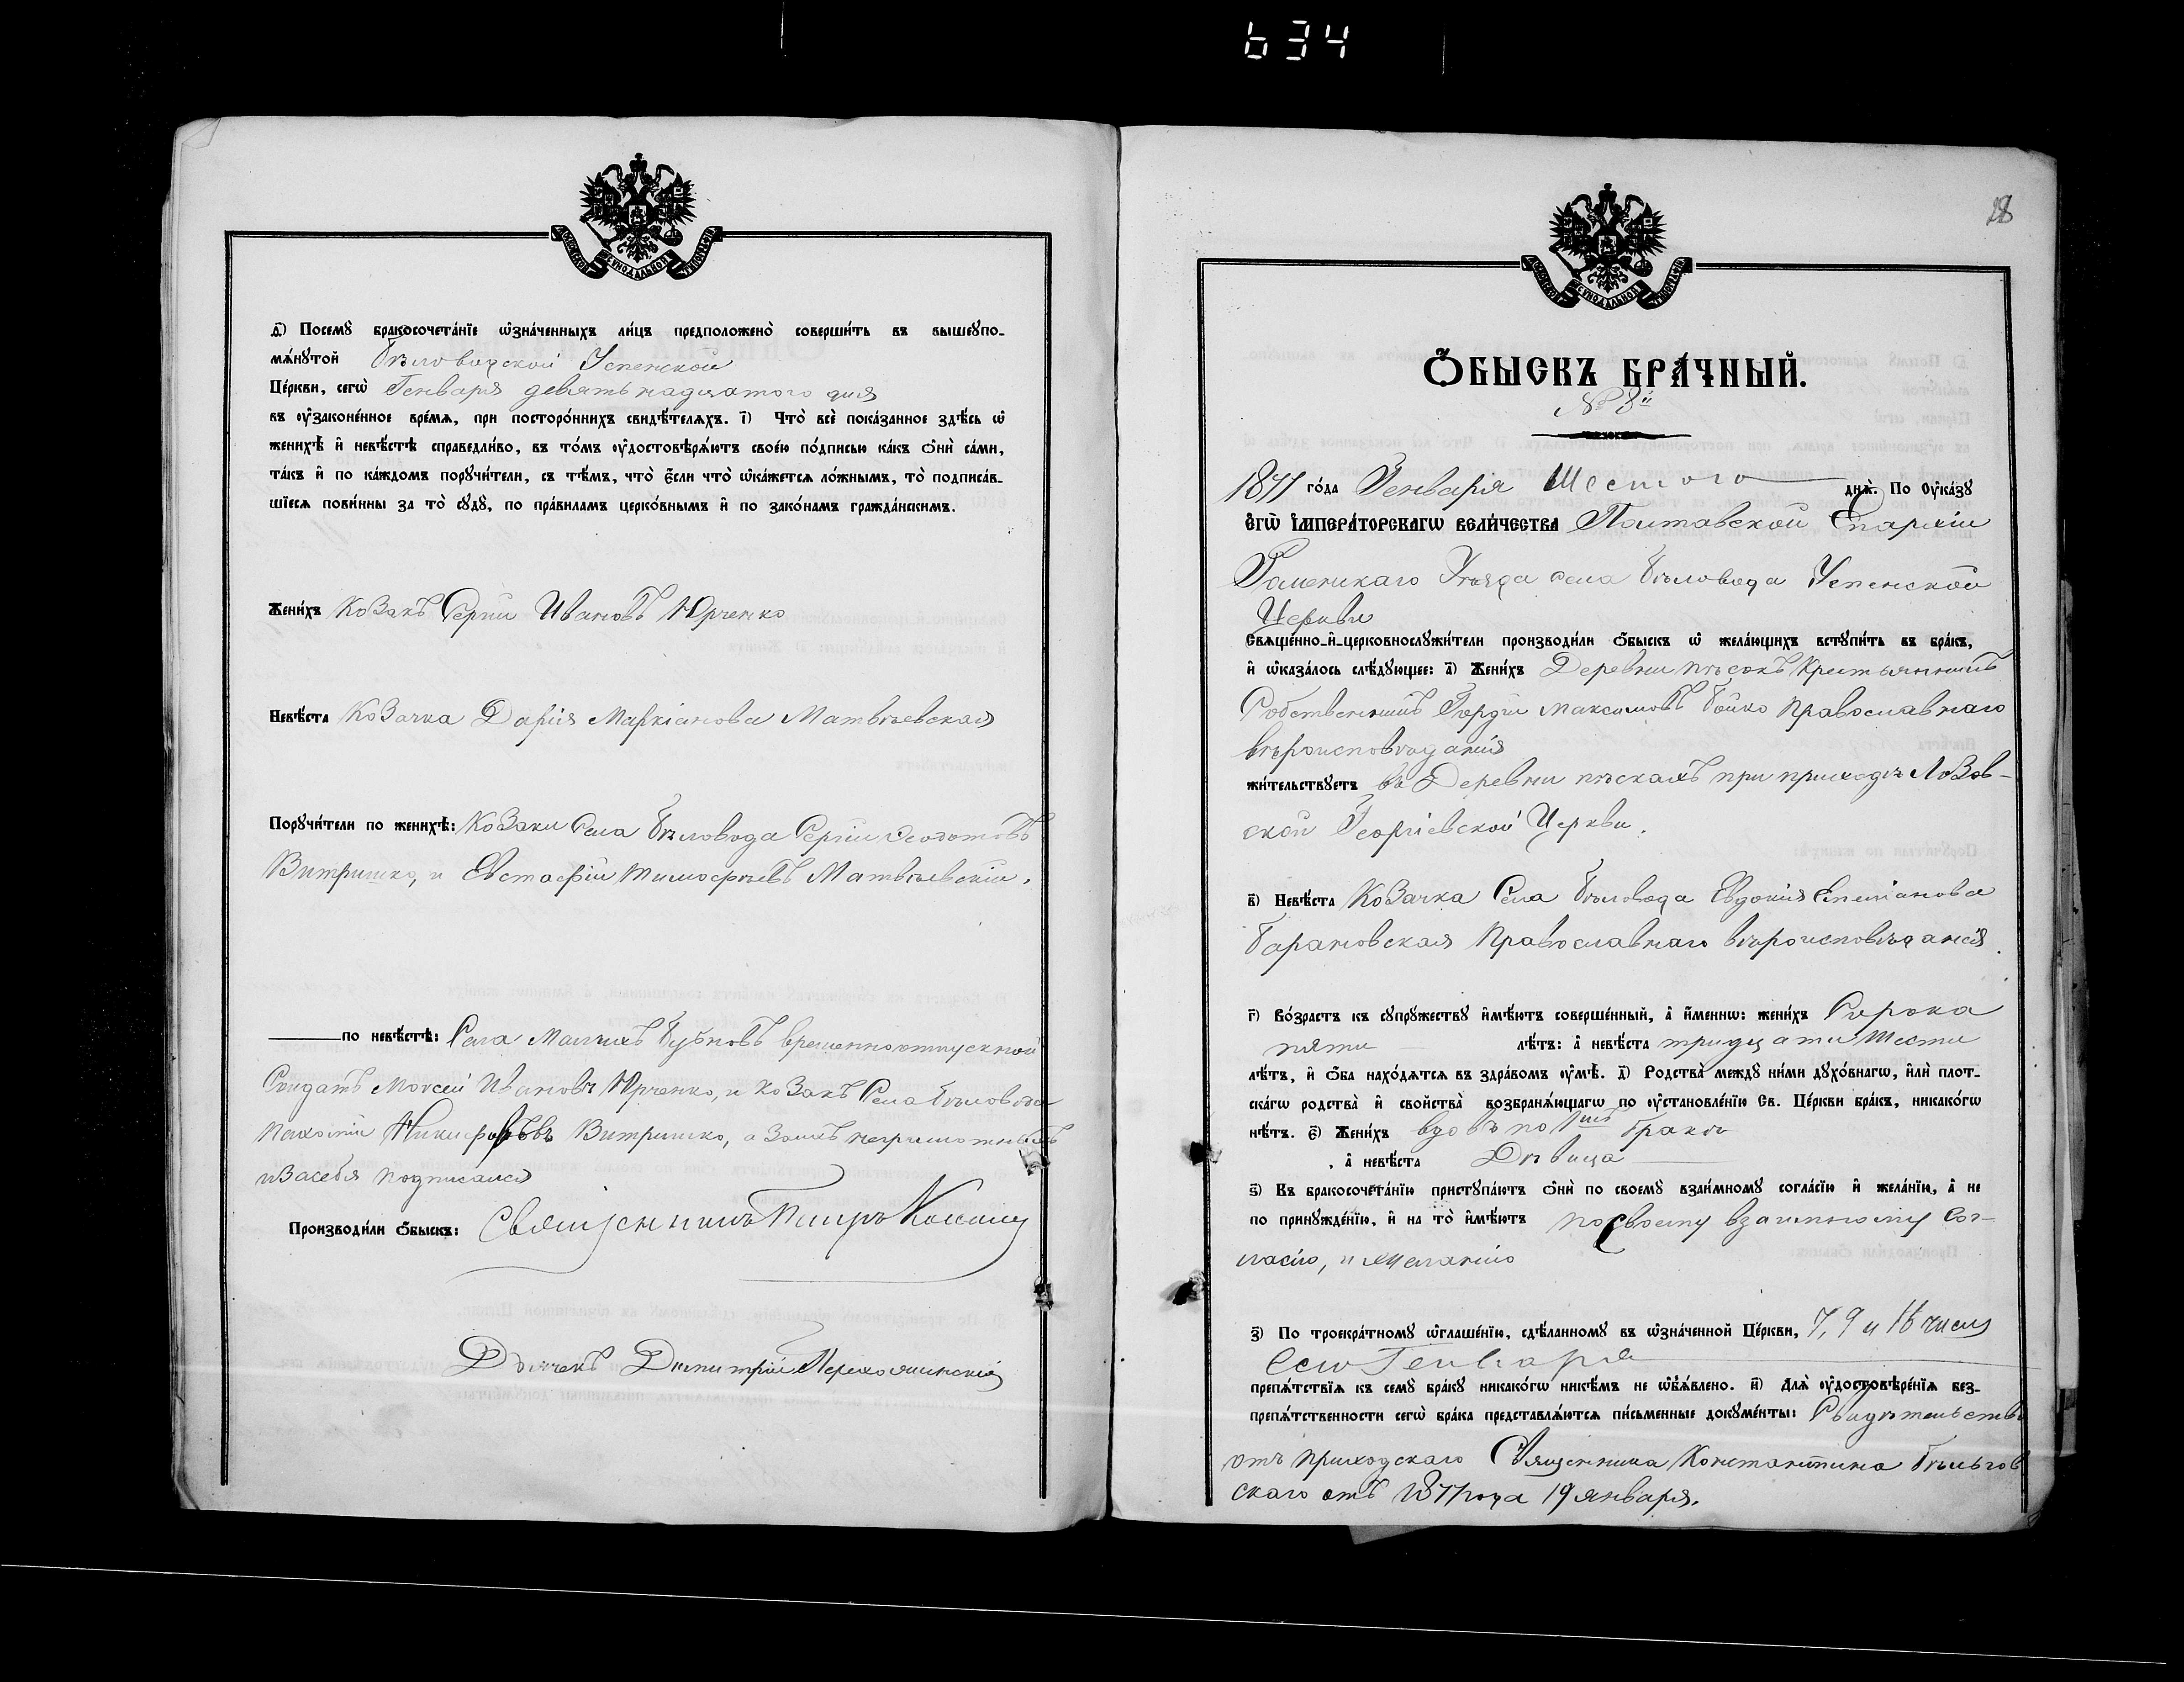 634
МОСКОВСКОЙ СѴНОДАЛЬНОЙ ТИПОГРАФІИ
д҃) Посемꙋ̀ бракосочета́нїе ѡ҆зна́ченныхъ ли́цъ предположено̀ соверши́ть въ вышеꙋпо-
мѧ́нꙋтой Бѣловодской Успенской
Це́ркви, сегѡ̀ Генваря девятьнадцатого дня
въ ᲂу҆законе́нное вре́мѧ, при посторо́ннихъ свидѣ́телѧхъ. і҃) Что̀ всѐ пока́занное здѣ́сь ѡ҆
женихѣ̀ и҆ невѣ́стѣ справедли́во, въ то́мъ ᲂу҆достовѣрѧ́ютъ свое́ю по́дписью ка́къ ѻ҆нѝ са́ми,
та́къ и҆ по ка́ждомъ порꙋчи́тели, съ тѣ́мъ, что̀ є҆́сли что̀ ѡ҆ка́жетсѧ ло́жнымъ, то̀ подписа́в-
шїесѧ пови́нны за то̀ сꙋдꙋ̀, по пра́виламъ церко́внымъ и҆ по зако́намъ гражда́нскимъ.
Жени́хъ Козакъ Сергій Ивановъ Юрченко
Невѣ́ста Козачка Дарія Маркіанова Матвѣевская
Порꙋчи́тели по женихѣ̀: Козаки Села Бѣловода Сергій Федотовъ
Витришко, и Евстафій Тимофѣевъ Матвѣевскій.
по невѣ́стѣ: Села Малихъ Бубновъ временноотпускной
Солдатъ Моисей Ивановъ Юрченко, и Козакъ Села Бѣловода
Пахомій Никифоровъ Витришко, а за нихъ неграмотныхъ
и за себя подписался
Производи́ли ѻ҆́быскъ: Священникъ Петръ
Дьячекъ Димитрій
18
МОСКОВСКОЙ СѴНОДАЛЬНОЙ ТИПОГРАФІИ
Ѻ҆́БЫСКЪ БРА́ЧНЫЙ.
№ 8й
1877 го́да Генваря Шестого днѧ̀. По ᲂу҆ка́зꙋ
Є҆ГѠ̀ І҆МПЕРА́ТОРСКАГѠ ВЕЛИ́ЧЕСТВА Полтавской Епархіи
Роменскаго Уѣзда села Бѣловода Успенской
Церкви
Свѧще́нно-и҆-церковнослꙋжи́тели производи́ли ѻ҆́быскъ ѡ҆ жела́ющихъ встꙋпи́ть въ бра́къ,
и҆ ѡ҆каза́лось слѣ́дꙋющее: а҃) Жени́хъ Деревни Пѣсокъ Крестьянинъ
Собственникъ Гордій Максимовъ Бойко Православнаго
вѣроисповѣданія
жи́тельствꙋетъ въ Деревни Пѣскахъ при приходѣ Лозов-
ской Георгіевской Церкви.
в҃) Невѣ́ста Козачка Села Бѣловода Евдокія Емиліанова
Барановская Православнаго вѣроисповѣданія.
г҃) Во́зрастъ къ сꙋпрꙋ́жествꙋ и҆мѣ́ютъ соверше́нный, а҆ и҆́меннѡ: жени́хъ Сорока
пяти лѣ́тъ: а҆ невѣ́ста тридцати Шести
лѣ́тъ, и҆ ѻ҆́ба нахо́дѧтсѧ въ здра́вомъ ᲂу҆мѣ̀. д҃) Родства̀ междꙋ̀ ни́ми дꙋхо́внагѡ, и҆лѝ плот-
ска́гѡ родства̀ и҆ свойства̀ возбранѧ́ющагѡ по ᲂу҆становле́нїю Св. Це́ркви бра́къ, никако́гѡ
нѣ́тъ. є҃) Жени́хъ вдовъ по 1мъ бракѣ
, а҆ невѣ́ста Дѣвица
ѕ҃) Въ бракосочета́нїю пристꙋпа́ютъ ѻ҆нѝ по своемꙋ̀ взаи́мномꙋ согла́сїю и҆ жела́нїю, а҆ не
по принꙋжде́нїю, и҆ на то̀ и҆мѣ́ютъ по своему взаимному сог-
ласію, и желанію
з҃) По троекра́тномꙋ ѡ҆глаше́нїю, сдѣ́ланномꙋ въ ѡ҆зна́ченной Це́ркви, 7, 9 и 16 числ
сего Генваря
препѧ́тствїѧ къ семꙋ̀ бра́кꙋ никако́гѡ никѣ́мъ не ѡ҆б̾ѧ́влено. и҃) Длѧ̀ ᲂу҆достовѣре́нїѧ без-
препѧ́тственности сегѡ̀ бра́ка представлѧ́ютсѧ пи́сьменные докꙋме́нты: Свидѣтельство
отъ приходскаго Священника Константина Бѣльгов
скаго отъ 1877 года 19 января.